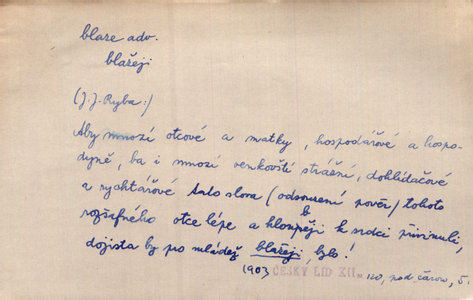 blaze adv.
blažeji
(J. J. Ryba:)
Aby mnozí otcové a matky, hospodářové a hospo-
dyně, ba i mnozí venkovští strážní, dohlídačové
a rychtářové tato slova (odsouzení pověr) tohoto
rozšafného otce lépe a hlouběji k srdci přivinuli,
dojista by po mládež blažeji bylo!
(1903 ČESKÝ LID XII. 120, pod čarou, 5.